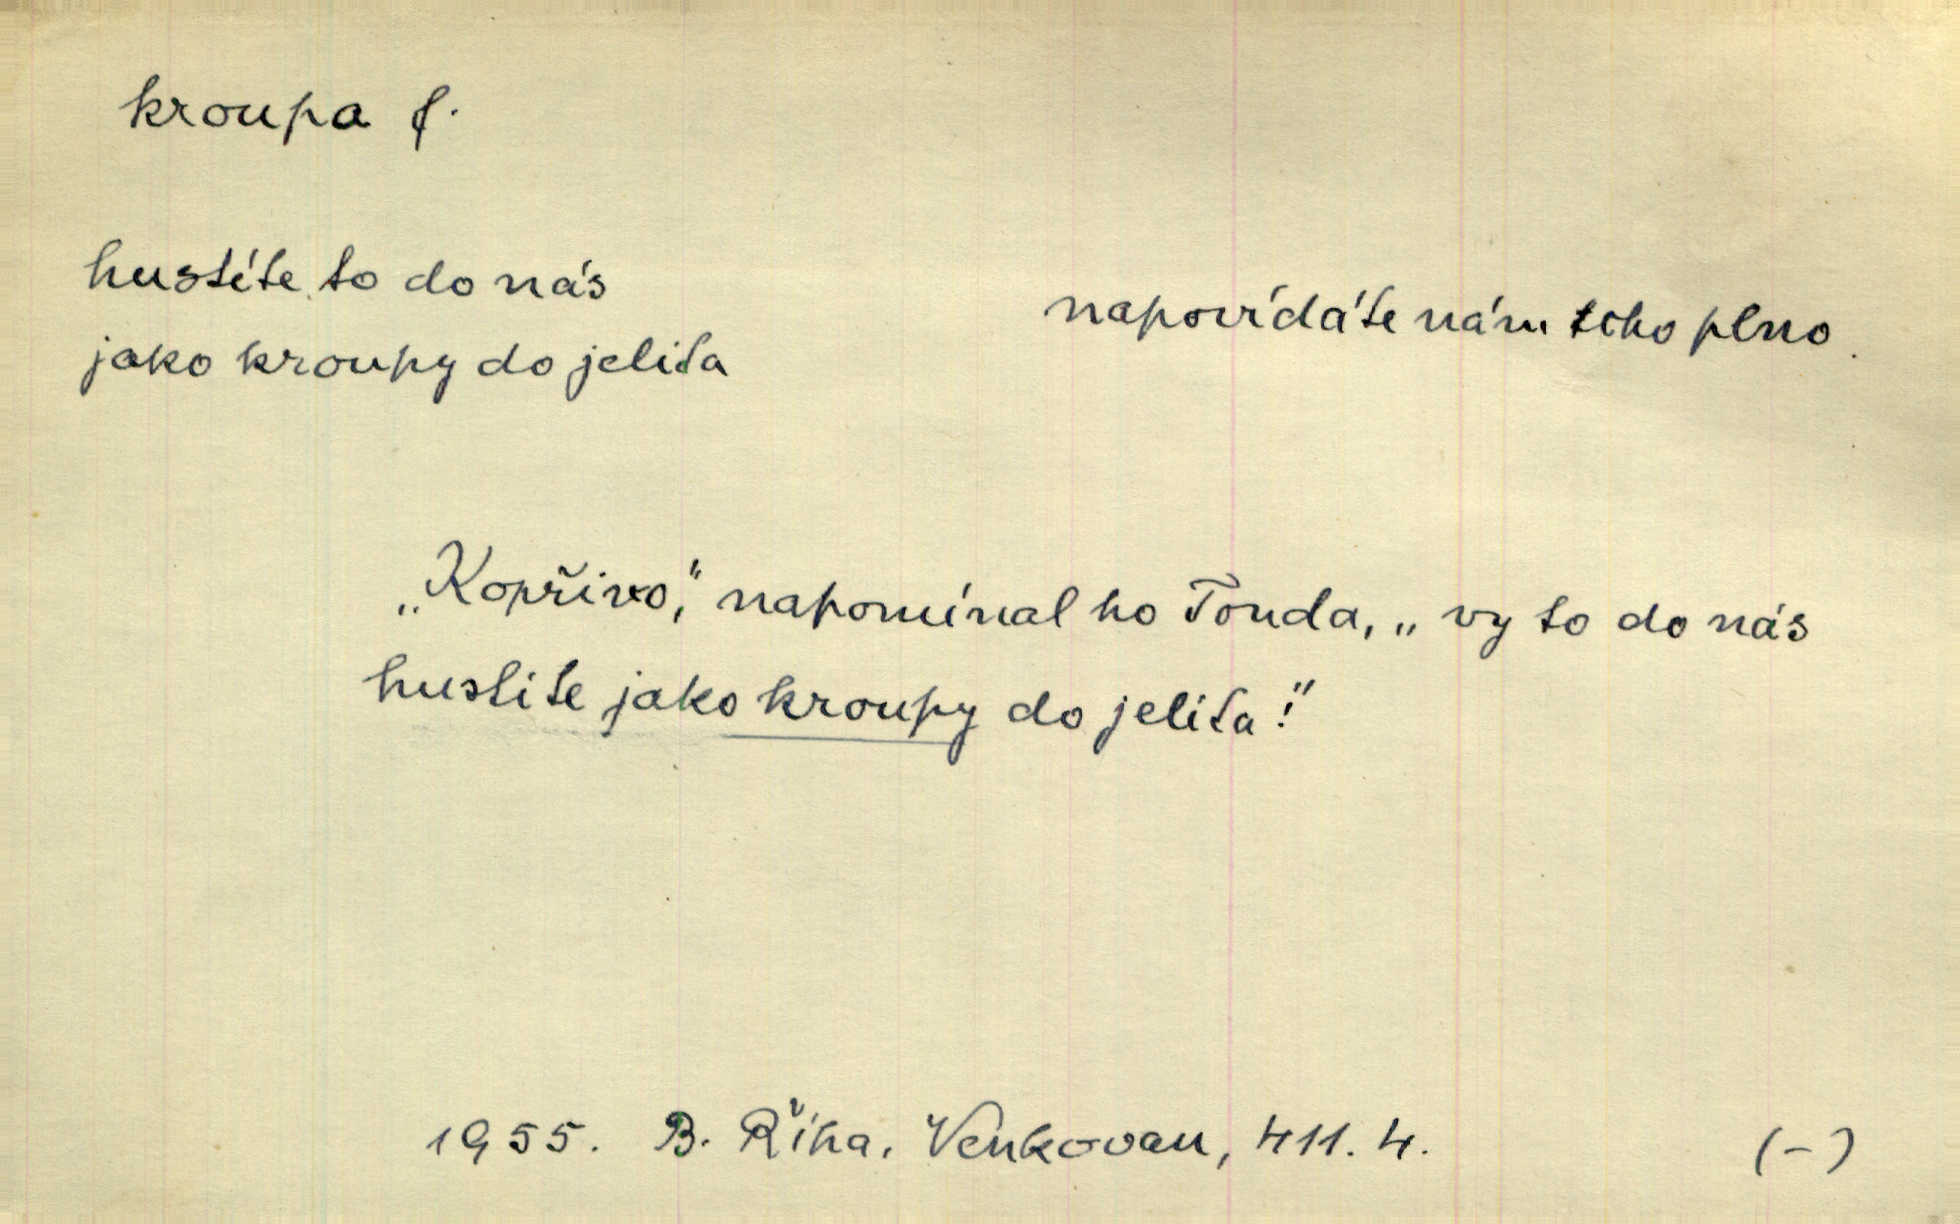 kroupa f.
hustíte to do nás
jako kroupy do jelita
napovídáte nám toho plno.
„Kopřivo,“ napomínal ho Tonda, „vy to do nás
hustíte jako kroupy do jelita!“
1955. B. Říha, Venkovan, 411. 4. (-)